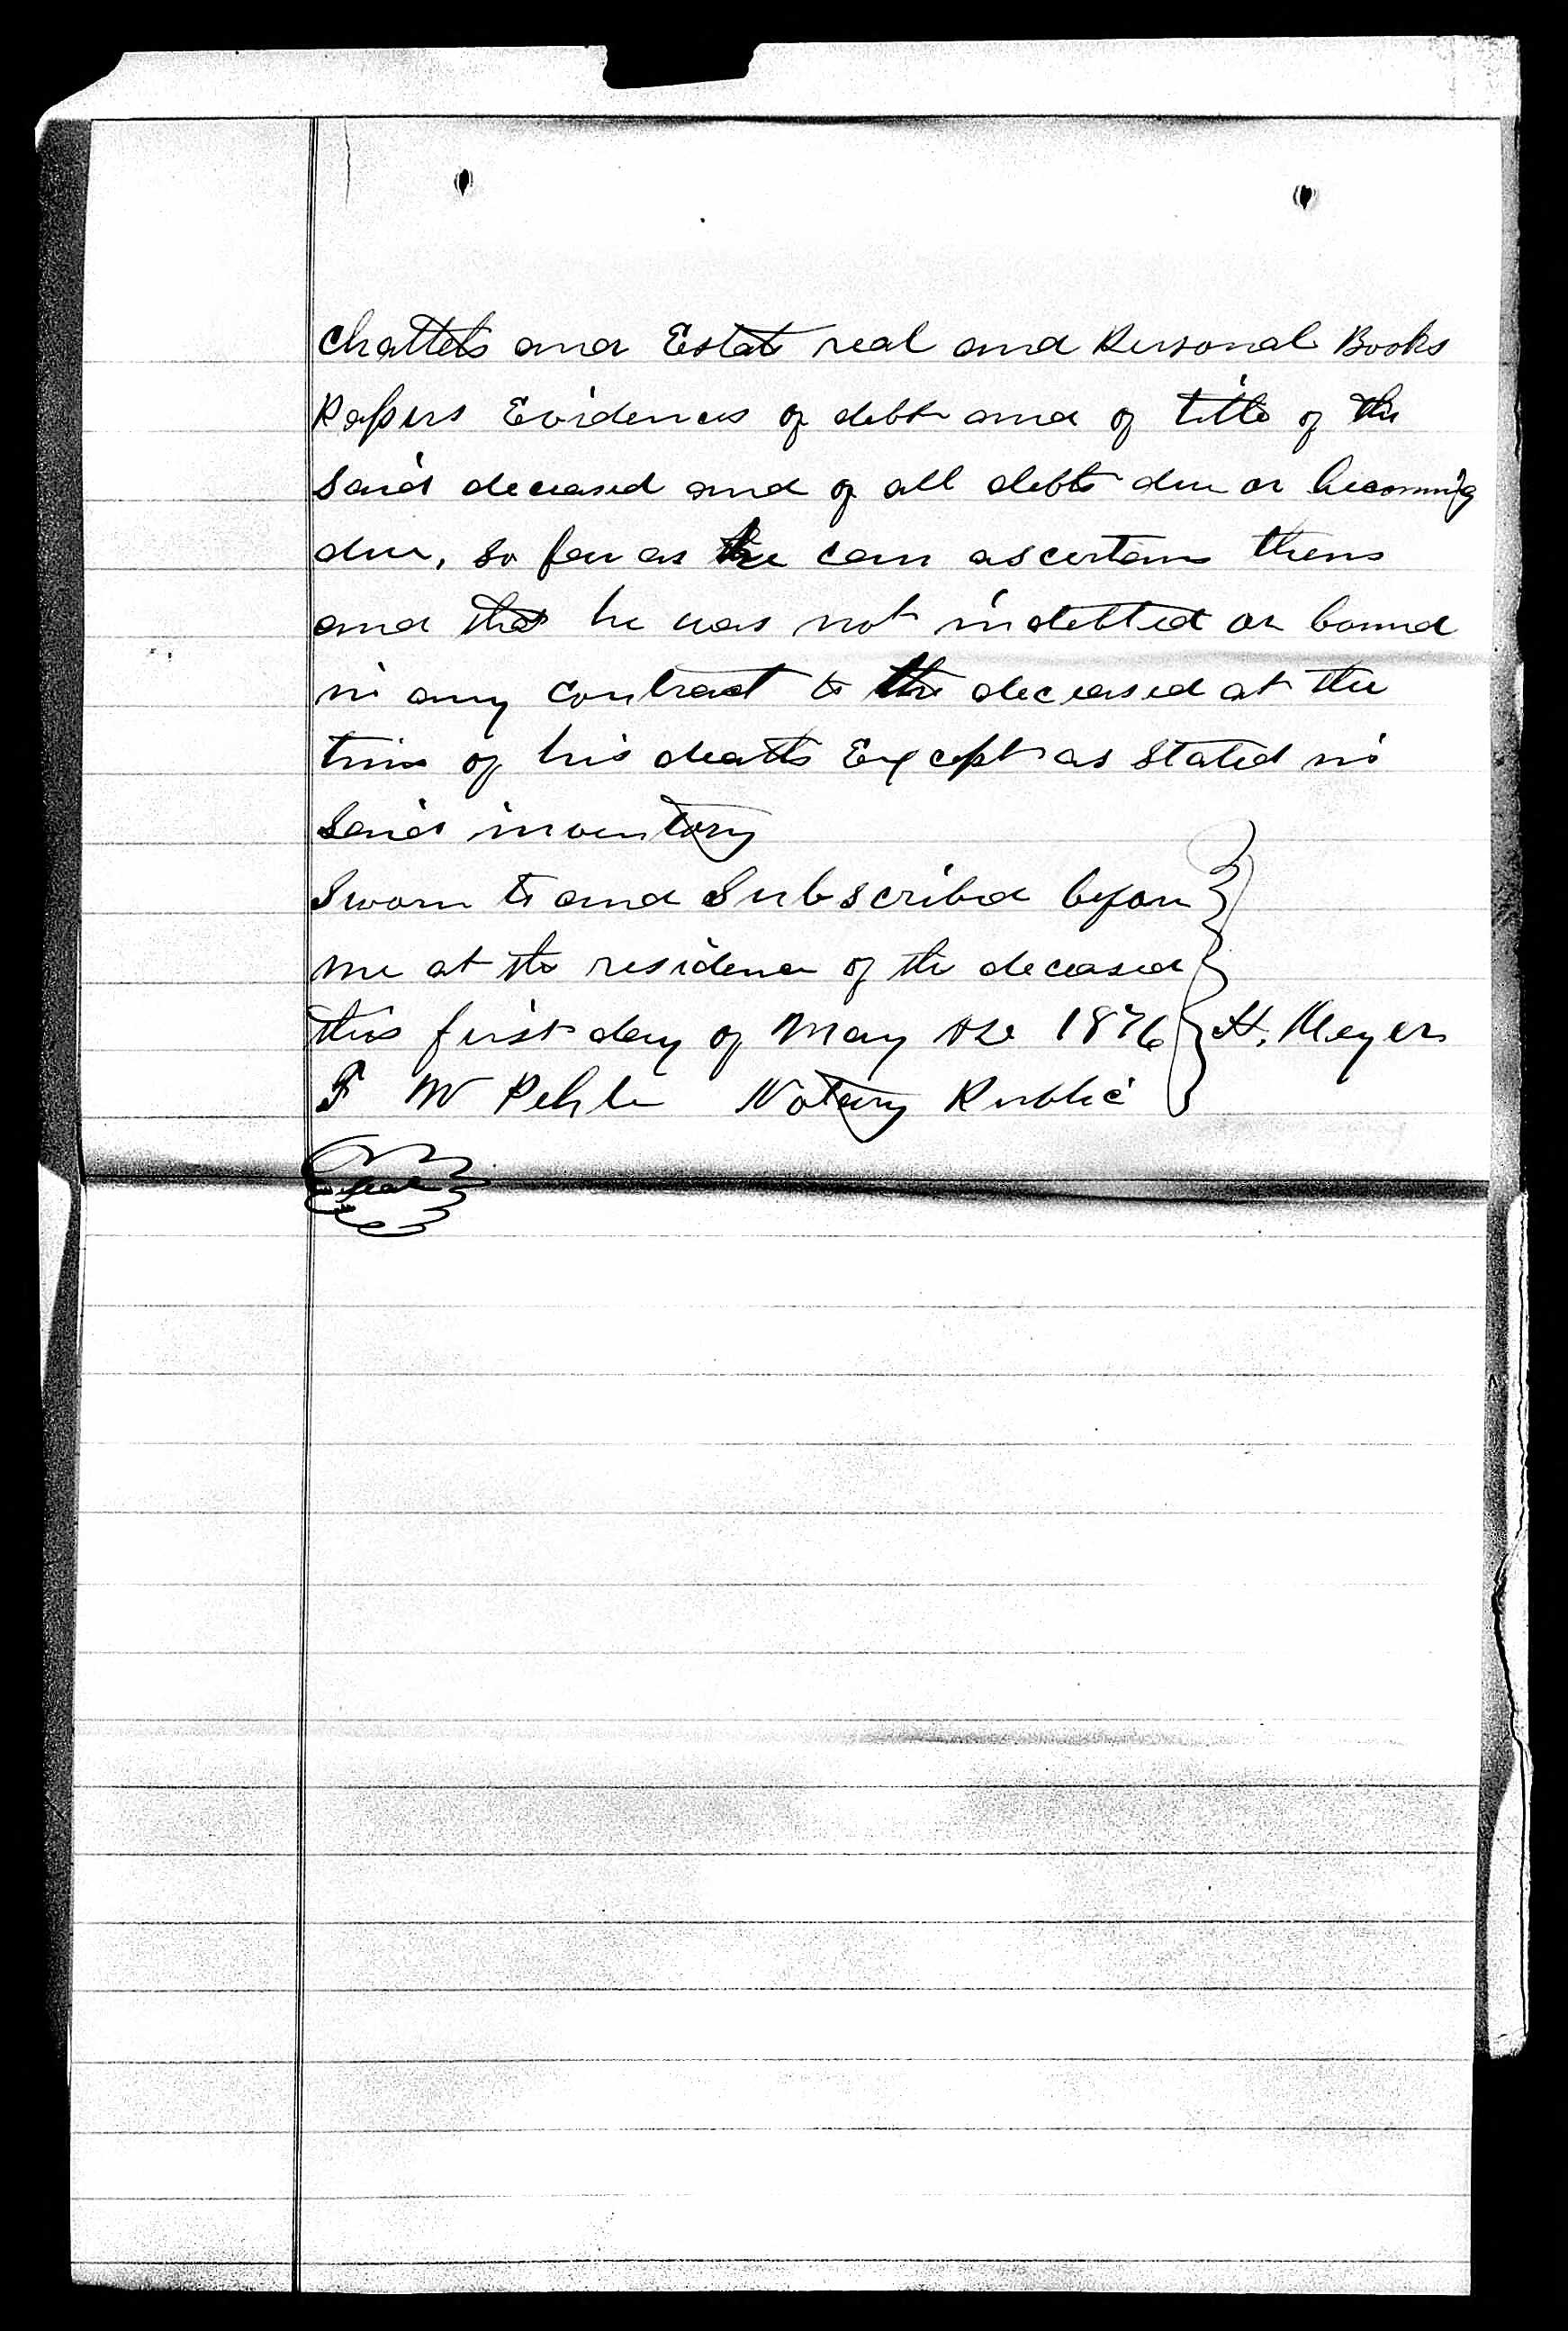 Chattels and Estate real and Personal Books
Papers Evidences of debt and of title of the
Said deceased and of all debts due or becoming
due, So far as he can ascertain them
and that he was not indebted or bound
in any contract to the deceased at the
time of his death Except as Stated in
Said inventory
Sworn to and Subscribed before
me at the residence of the deceased
this first day of May 1876 H. Meyers
F W Pehle Notary Public
seal